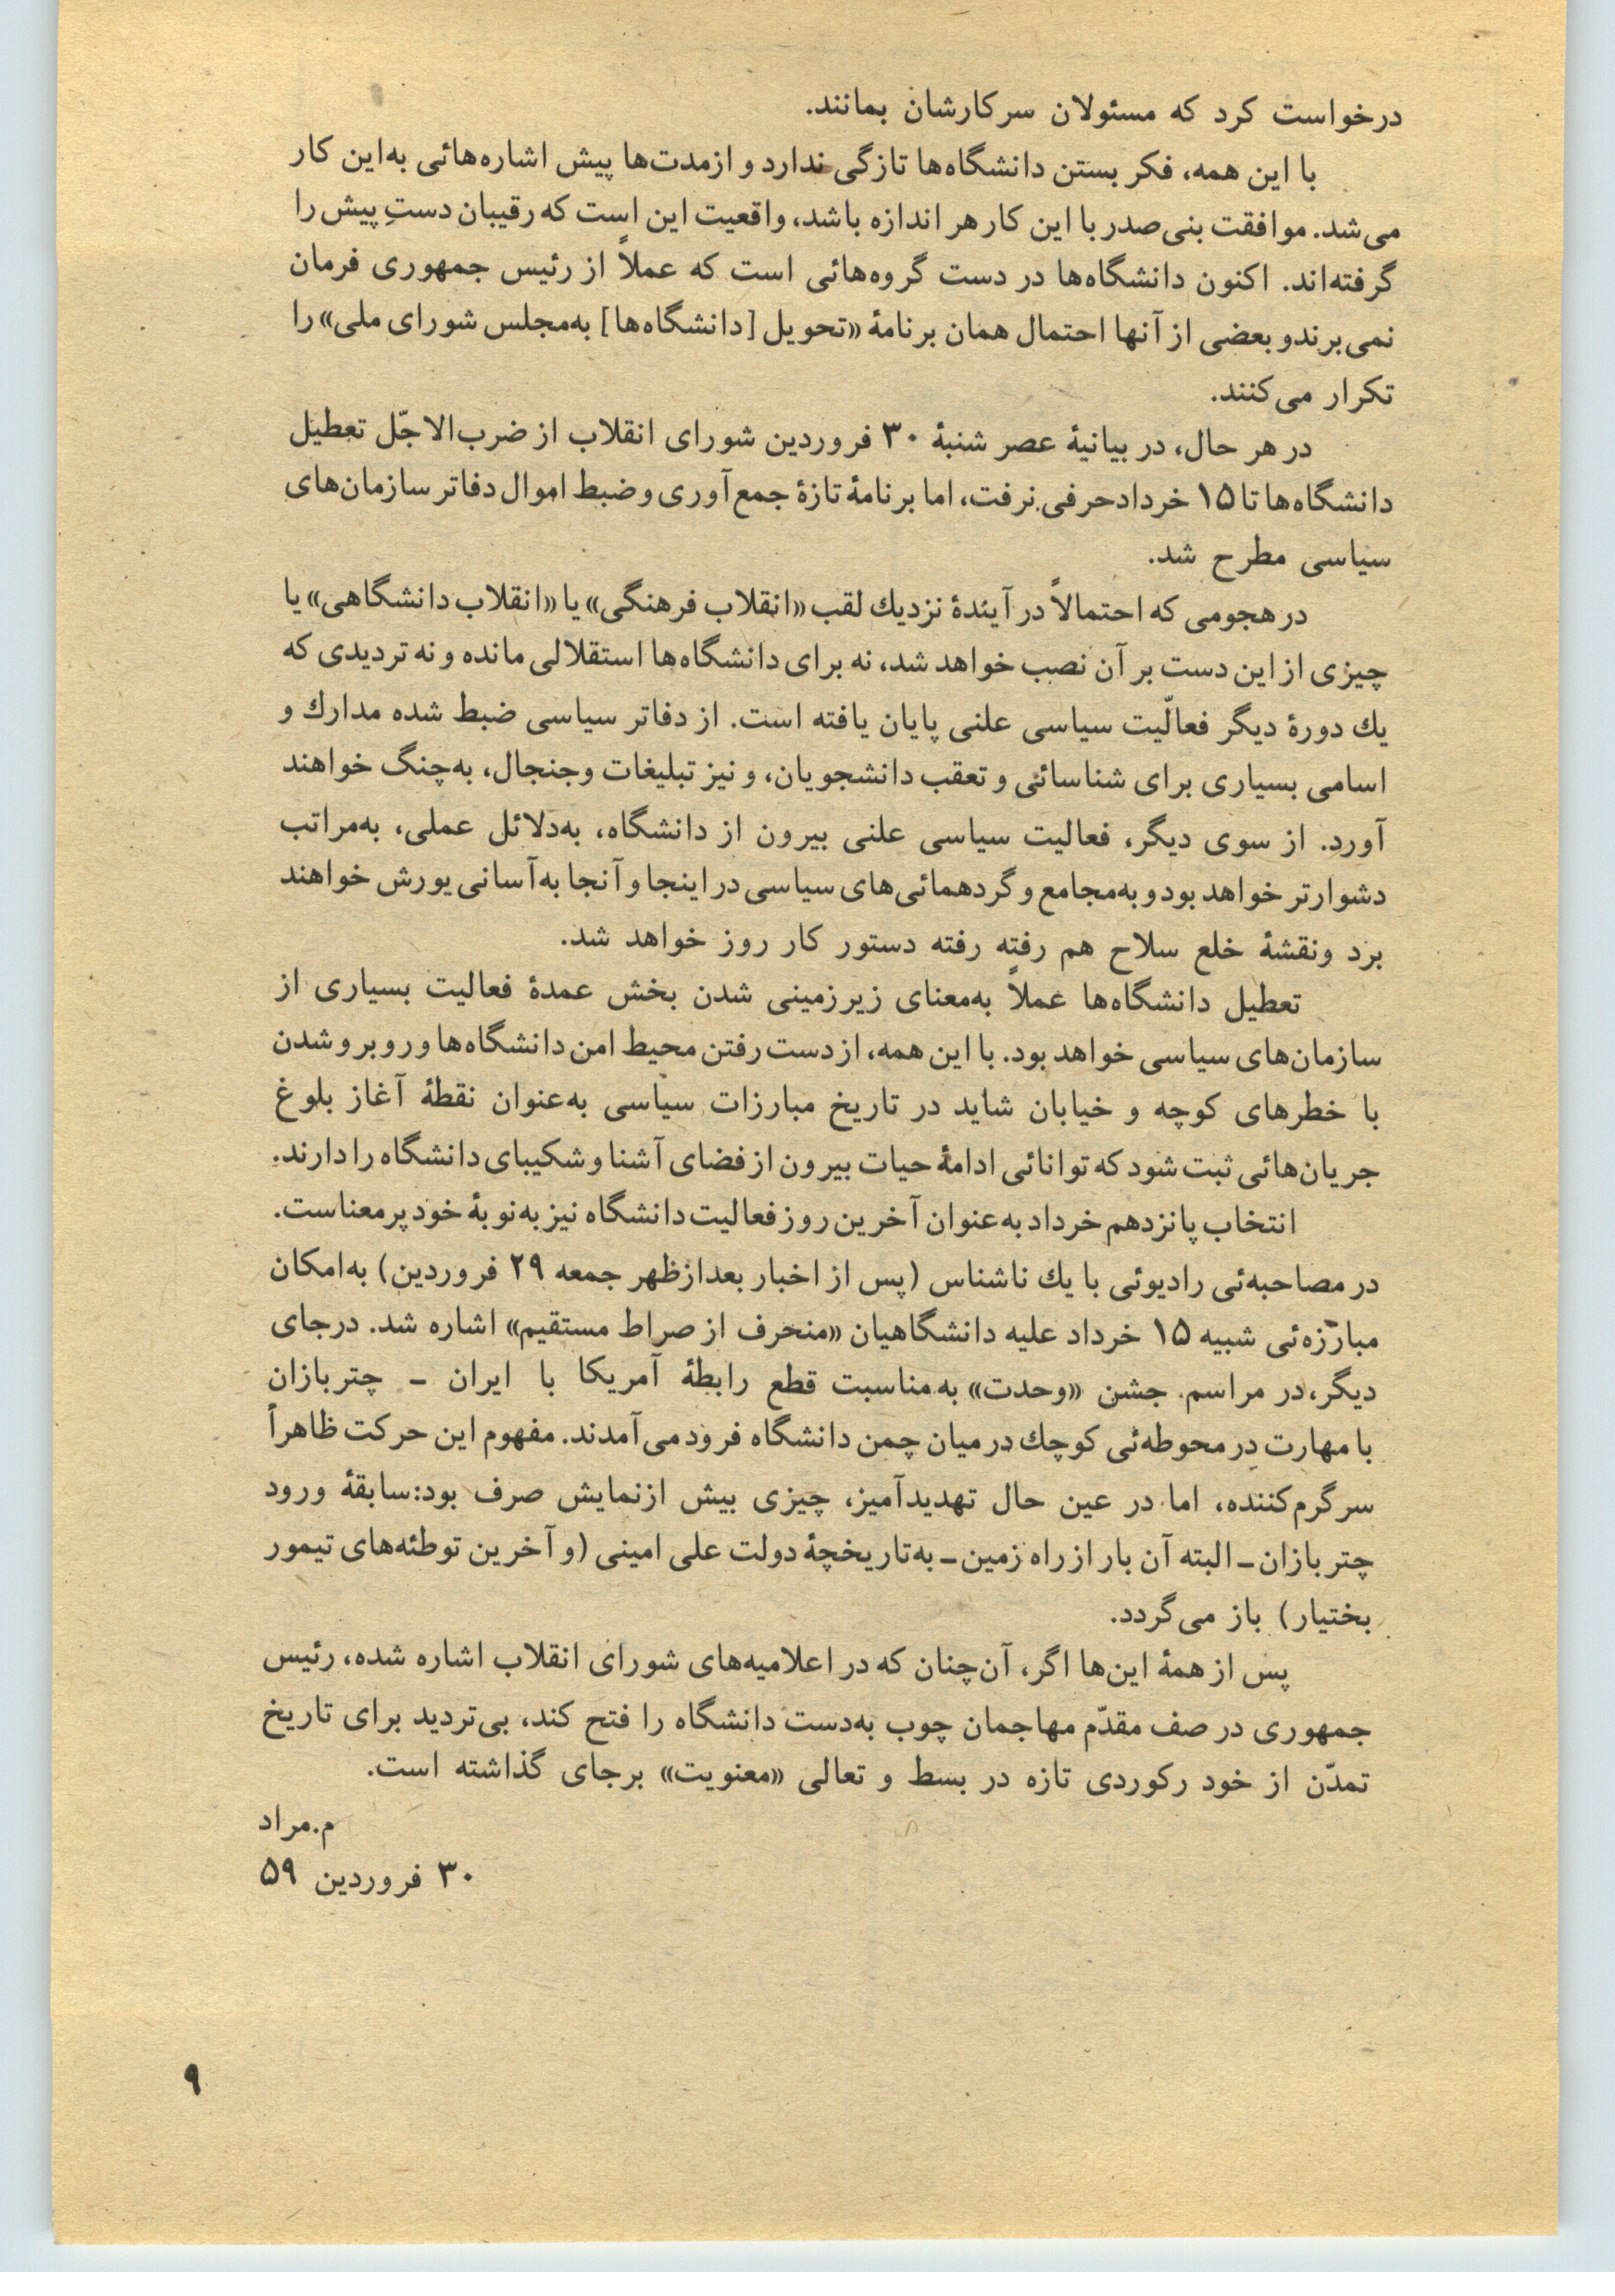 درخواست کرد که مسئولان سرکارشان بمانند.
با این همه، فکر بستن دانشگاه‌ها تازگی ندارد و ازمدت‌ها پیش اشاره‌هائی به‌این کار
می‌شد. موافقت بنی‌صدر با این کار هر اندازه باشد، واقعیت این است که رقیبان دستِ پیش را
گرفته‌اند. اکنون دانشگاه‌ها در دست گروه‌هائی است که عملاً از رئیس جمهوری فرمان
نمی‌برندو بعضی از آنها احتمال همان برنامهٔ «تحویل [دانشگاه‌ها] به‌مجلس شورای ملی» را
تکرار می‌کنند.
در هر حال، در بیانیهٔ عصر شنبهٔ ۳۰ فروردین شورای انقلاب از ضرب‌الاجّل تعطیل
دانشگاه‌ها تا ۱۵ خرداد حرفی نرفت، اما برنامهٔ تازهٔ جمع‌آوری و ضبط اموال دفاتر سازمان‌های
سیاسی مطرح شد.
در هجومی که احتمالاً در آیندهٔ نزدیك لقب «انقلاب فرهنگی» یا «انقلاب دانشگاهی» یا
چیزی از این دست بر آن نصب خواهد شد، نه برای دانشگاه‌ها استقلالی مانده و نه تردیدی که
یك دورهٔ دیگر فعالّیت سیاسی علنی پایان یافته است. از دفاتر سیاسی ضبط شده مدارك و
اسامی بسیاری برای شناسائی و تعقب دانشجویان، و نیز تبلیغات وجنجال، به‌چنگ خواهند
آورد. از سوی دیگر، فعالیت سیاسی علنی بیرون از دانشگاه، به‌دلائل عملی، به‌مراتب
دشوارتر خواهد بود و به‌مجامع و گردهمائی‌های سیاسی در اینجا و آنجا به‌آسانی یورش خواهند
برد ونقشهٔ خلع سلاح هم رفته رفته دستور کار روز خواهد شد.
تعطیل دانشگاه‌ها عملاً به‌معنای زیرزمینی شدن بخش عمدهٔ فعالیت بسیاری از
سازمان‌های سیاسی خواهد بود. با این همه، از دست رفتن محیط امن دانشگاه‌ها و روبرو شدن
با خطرهای کوچه و خیابان شاید در تاریخ مبارزات سیاسی به‌عنوان نقطهٔ آغاز بلوغ
جریان‌هائی ثبت شود که توانائی ادامهٔ حیات بیرون از فضای آشنا و شکیبای دانشگاه را دارند.
انتخاب پانزدهم خرداد به‌عنوان آخرین روز فعالیت دانشگاه نیز به‌نوبهٔ خود پرمعناست.
در مصاحبه‌ئی رادیوئی با یك ناشناس (پس از اخبار بعدازظهر جمعه ۲۹ فروردین) به‌امکان
مبارزه‌ئی شبیه ۱۵ خرداد علیه دانشگاهیان «منحرف از صراط مستقیم» اشاره شد. درجای
دیگر،در مراسم جشن «وحدت» به‌مناسبت قطع رابطهٔ آمریکا با ایران – چتربازان
با مهارت در محوطه‌ئی کوچك در میان چمن دانشگاه فرود می‌آمدند. مفهوم این حرکت ظاهراً
سرگرم‌کننده، اما در عین حال تهدیدآمیز، چیزی بیش ازنمایش صرف بود:سابقهٔ ورود
چتربازان – البته آن بار از راه زمین – به‌تاریخچهٔ دولت علی امینی (و آخرین توطئه‌های تیمور
بختیار) باز می‌گردد.
پس از همهٔ این‌ها اگر، آن‌چنان که در اعلامیه‌های شورای انقلاب اشاره شده، رئیس
جمهوری در صف مقدّم مهاجمان چوب به‌دست دانشگاه را فتح کند، بی‌تردید برای تاریخ
تمدّن از خود رکوردی تازه در بسط و تعالی «معنویت» برجای گذاشته است.
م.مراد
۳۰ فروردین ۵۹
۹